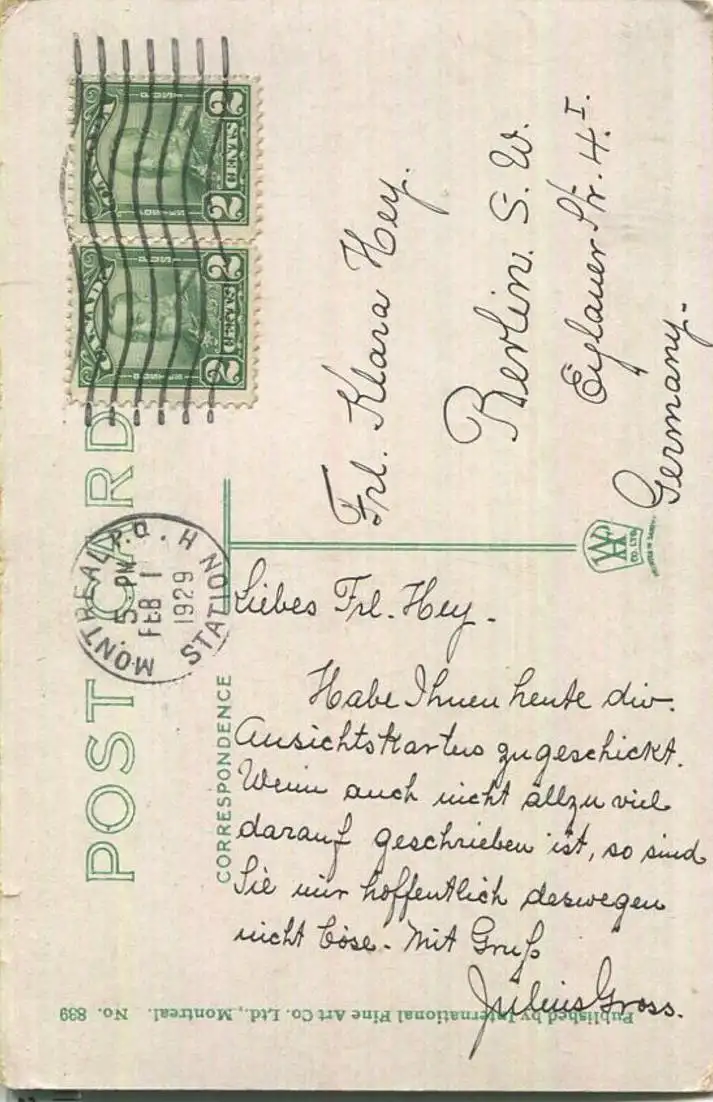 POST CARD
CORRESPONDENCE
MONTREAL P.Q. H
STATION
5 PM
FEB 1
1929
2 CENTS 2
CANADA
2 CENTS 2
CANADA
Frl. Klara Hey.
Berlin. S. W.
Eylauer Str. 4. I.
Germany.
CO. LTD.
Liebes Frl. Hey.
Habe Ihnen heute div.
Ansichtskarten zugeschickt.
Wenn auch nicht allzu viel
darauf geschrieben ist, so sind
Sie mir hoffentlich deswegen
nicht böse. Mit Gruß
Julius Gross.
Published by International Fine Art Co. Ltd., Montreal. No. 839